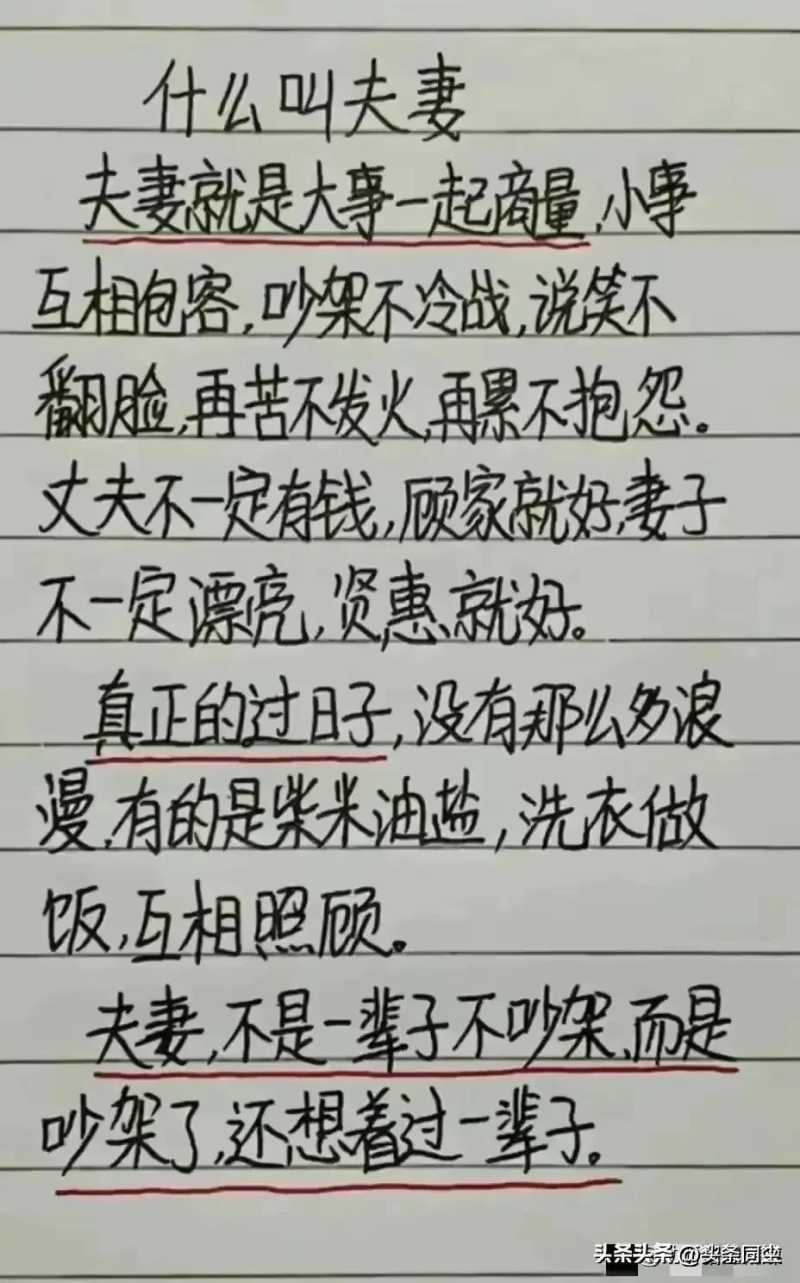 什么叫夫妻
夫妻就是大事一起商量,小事
互相包容,吵架不冷战,说笑不
翻脸,再苦不发火,再累不抱怨。
丈夫不一定有钱,顾家就好,妻子
不一定漂亮,贤惠就好。
真正的过日子,没有那么多浪
漫,有的是柴米油盐,洗衣做
饭,互相照顾。
夫妻,不是一辈子不吵架,而是
吵架了,还想着过一辈子。
头条头条 @头条同尘